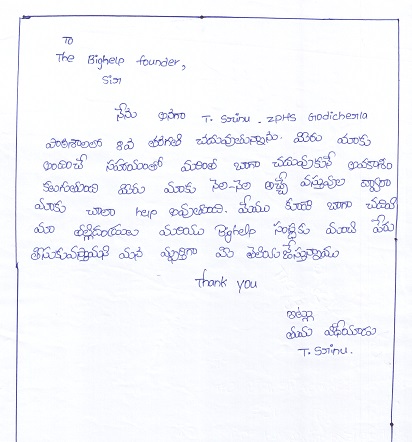 To
The Bighelp founder,
Sir
నేను అనగా T. Srinu. ZPHS Godicherla
పాఠశాలలో 8వ తరగతి చదువుతున్నాను. మీరు మాకు
అందించే సహాయంతో మరింత బాగా చదువుకునే అవకాశం
కలుగుతుంది మీరు మాకు నెల-నెల ఇచ్చే వస్తువుల ద్వారా
మాకు చాలా help అవుతుంది. మేము కూడా బాగా చదివి
మా తల్లిదండ్రులకు మరియు Bighelp సంస్థకు మంచి పేరు
తీసుకువస్తామని మన స్ఫూర్తిగా మీకు తెలియజేస్తున్నాము
Thank you
ఇట్లు
తమ విధేయుడు
T. Srinu.